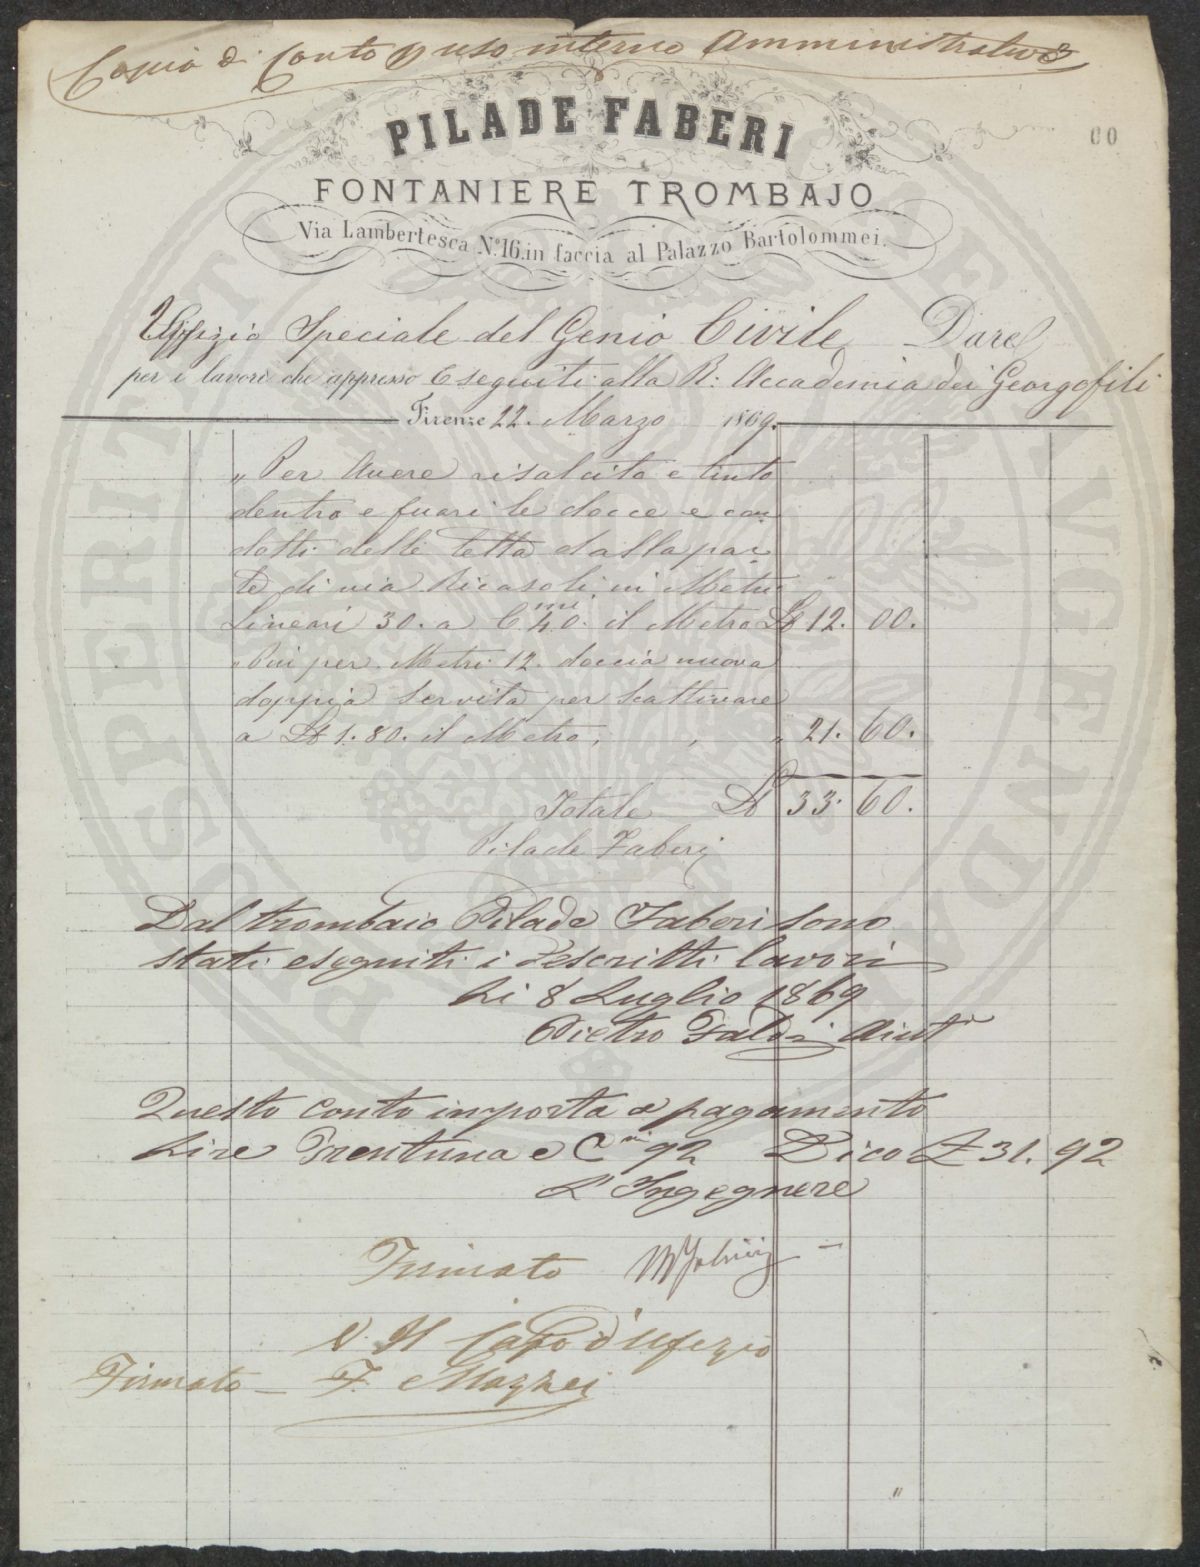 Copia di Conto p uso interno Amministrativo
PILADE FABERI
00
FONTANIERE TROMBAJO
Via Lambertesca N.º 16. in faccia al Palazzo Bartolommei.
Uffizio Speciale del Genio Civile Dare
per i lavori che appresso Eseguiti alla R: Accademia dei Georgofili
Firenze 22. Marzo 1869.
„ Per Avere risalcito e tinto
dentro e fuori le docce e con
dotti delle tetta dalla par
te di via Ricasoli in Metri
Lineari 30. a C.mi 40. il Metro L 12. 00.
„ Piu per Metri 12. doccia nuova
doppia Servita per
a L 1. 80. il Metro, , „ 21. 60.
Totale L 33. 60.
Pilade Faberi
Dal trombaio Pilade Faberi sono
stati eseguiti i descritti lavori
Li 8 Luglio 1869
Pietro Faldi Aiut
Questo conto importa a pagamento
Lire Trentuna e C.mi 92 Dico £ 31. 92
L'Ingegnere
Firmato
V. Il Capo d'Ufizio
Firmato — F. Mazzei
PROSPERITATI PUBLICAE AVGENDAE